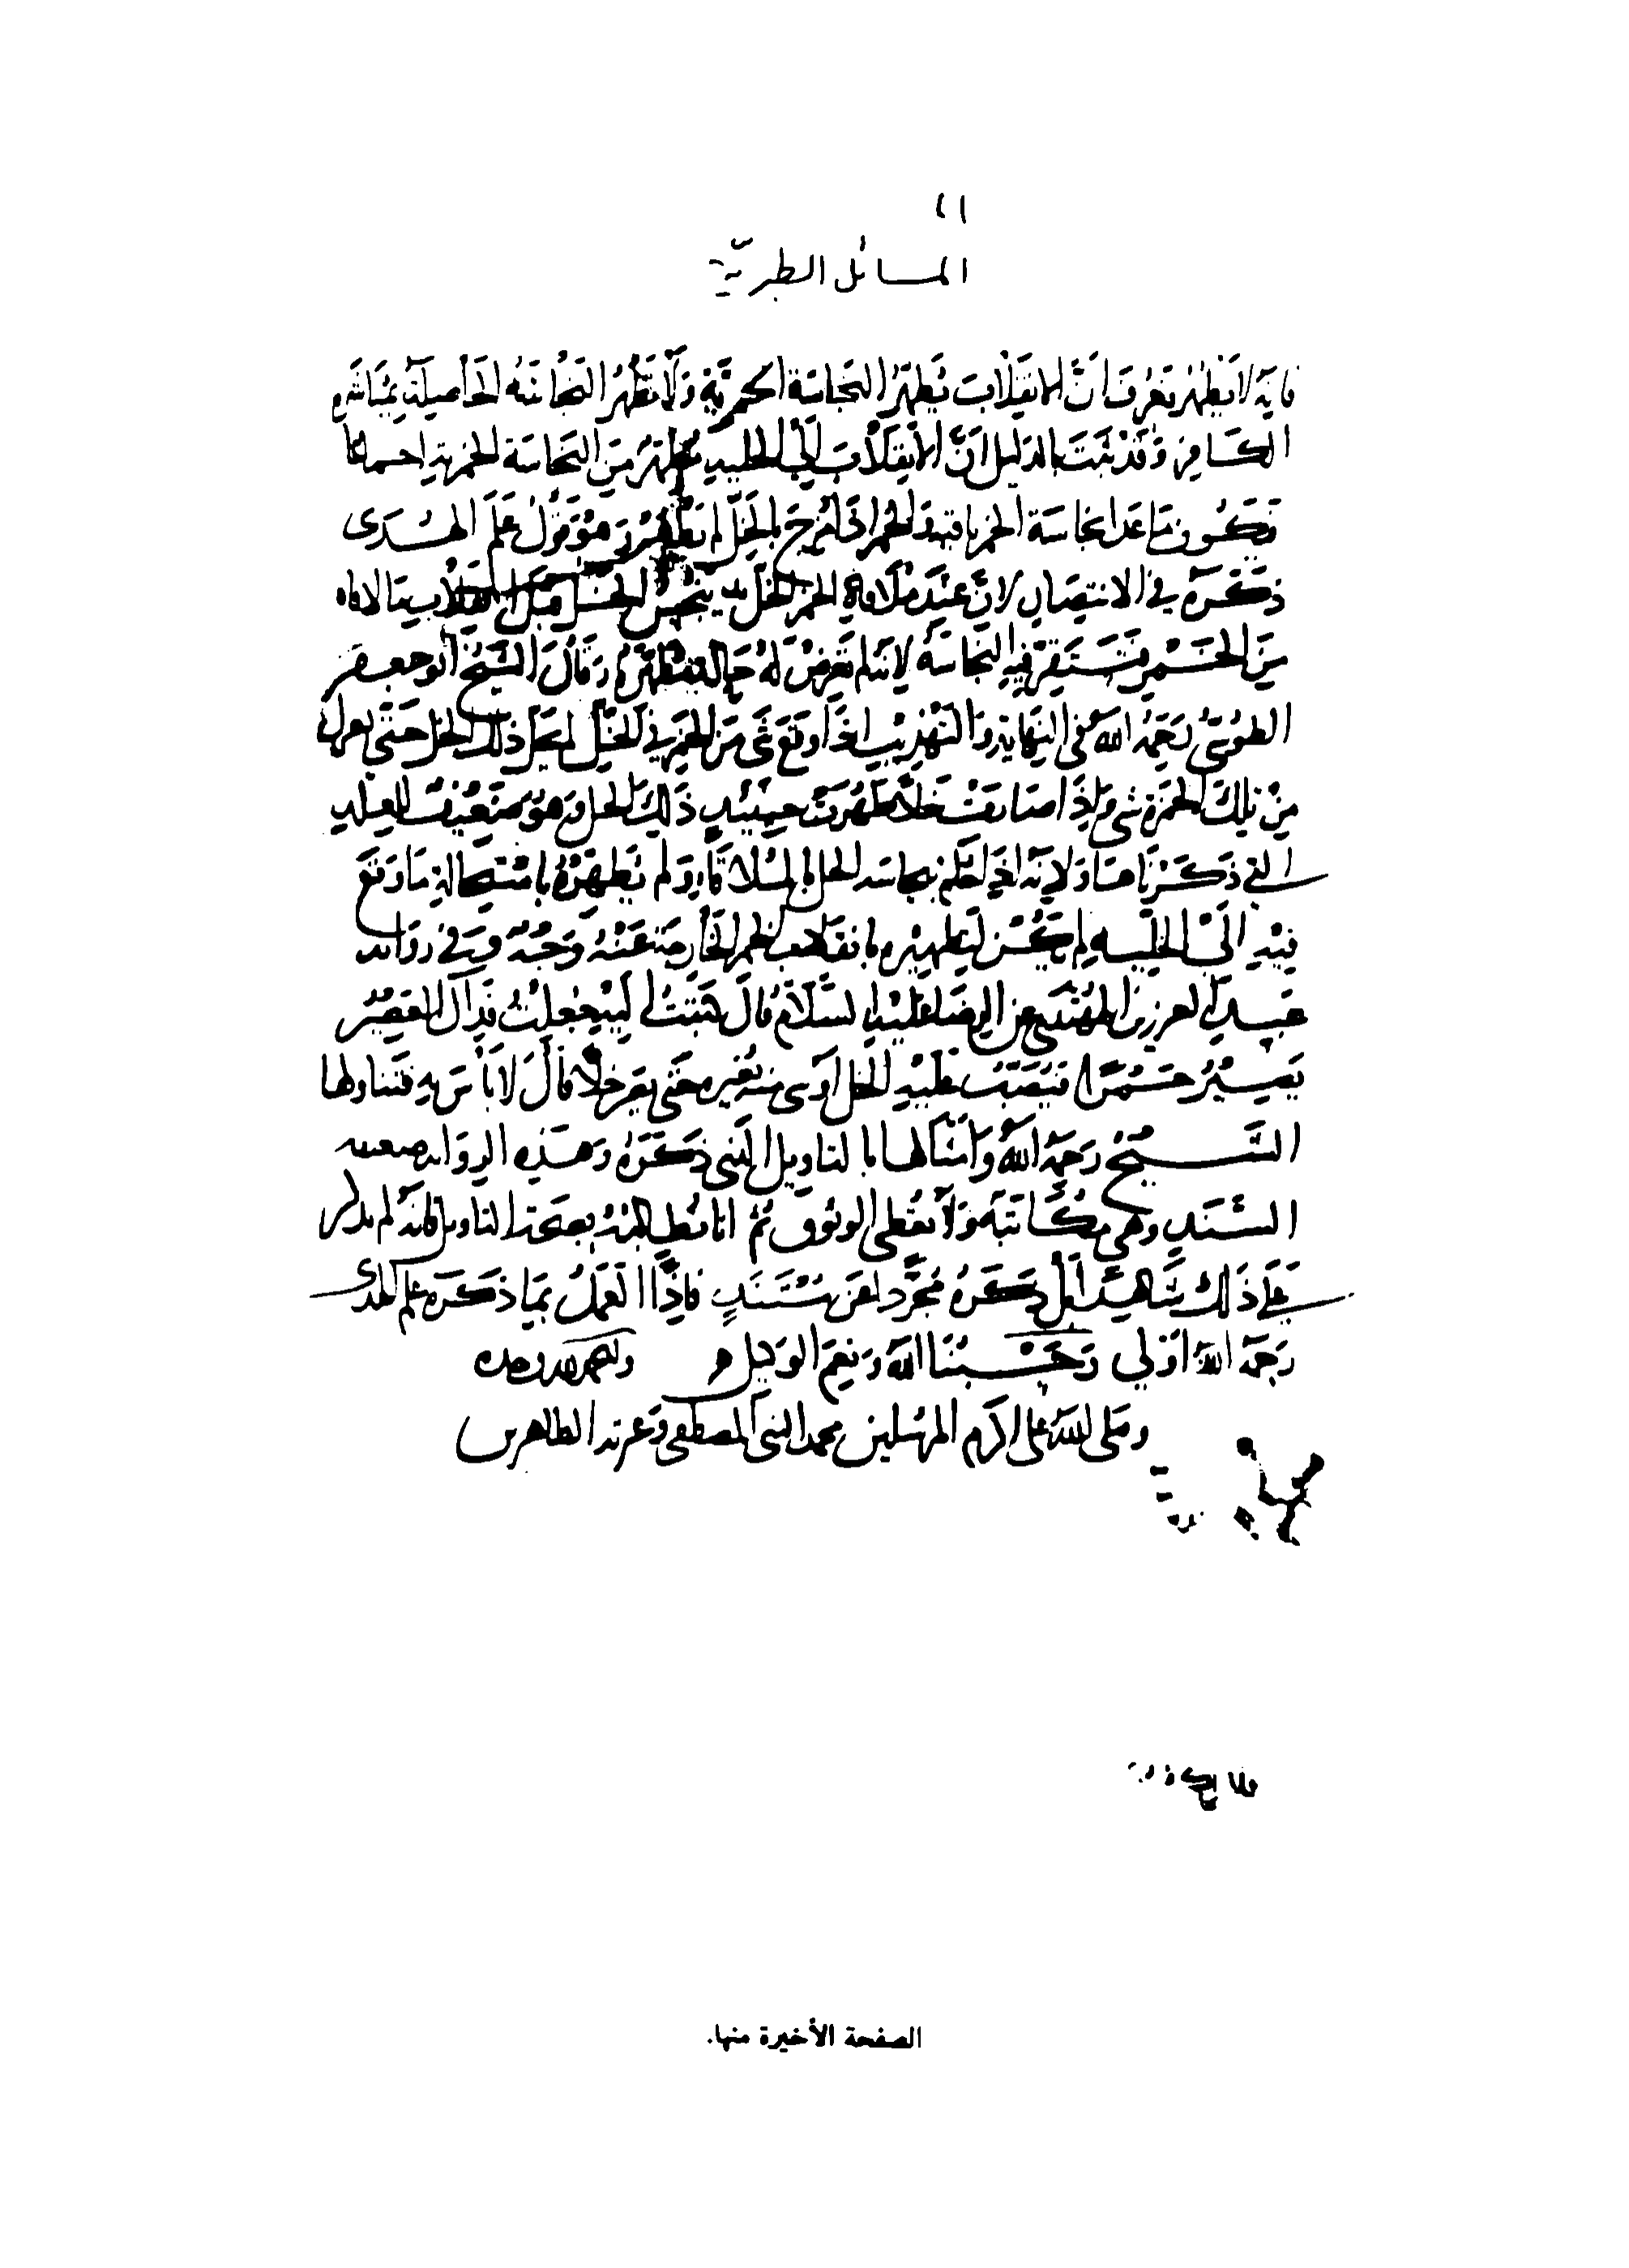 ٢١
المسائل الطبرية
فإنه لا يطهر فعرف أن الانقلاب يطهر النجاسة الخمرية ولا يطهر النجاسة الحاصلة بمباشرة
الكافر وقد ثبت بالدليل أن الانقلاب إلى الخلية مطهر من النجاسة الخمرية اجماعا
فيكون ما عدا نجاسة الخمر باقية والخمر إذا مزج بالخل لم وهو قول علم الهدى
ذكره في الانتصار لأن عند ملاقاة الخمر الخل ينجس الخل قبل بما لاقاه
من الخمر فتستقر فيه النجاسة لأنه لم تعرض له حالة تطهره وقال الشيخ أبو جعفر
الطوسي رحمه الله في النهاية والتهذيب إذا وقع شيء من الخمر في الخل لم يحل ذلك الخل حتى
من تلك الخمرة شيء فإذا صارت خلا طهرت حينئذ ذلك الخل وهو للعلة
التي ذكرناها ولأنه إذا حكم بنجاسة الخل بالملاقاة ولم نطهره باستحالة ما وقع
فيه إلى الخلية لم يكن لتطهيره بانقلاب الخمر الخارجة عنه وجه وفي رواية
عبد العزيز المهتدي عن الرضا عليه السلام قال كتبت إليه جعلت فداك العصير
يصير خمرا فيصب عليه الخل أو شيء يغيره حتى يصير خلا قال لا بأس به فتناولها
الشيخ رحمه الله وأمثالها بالتأويل الذي ذكره وهذه الرواية ضعيفة
السند وهي مكاتبة ولا تعطي الوثوق ثم انا نطالبه بصحة التأويل فإنه لم يذكر
على ذلك شاهدا بل ذكره مجردا عن مستند فإذا العمل بما ذكره علم الهدى
رحمه الله أولى وحسبنا الله ونعم الوكيل والحمد لله وحده
وصلى الله على أكرم المرسلين محمد النبي المصطفى وعترته الطاهرين
الصفحة الأخيرة منها.